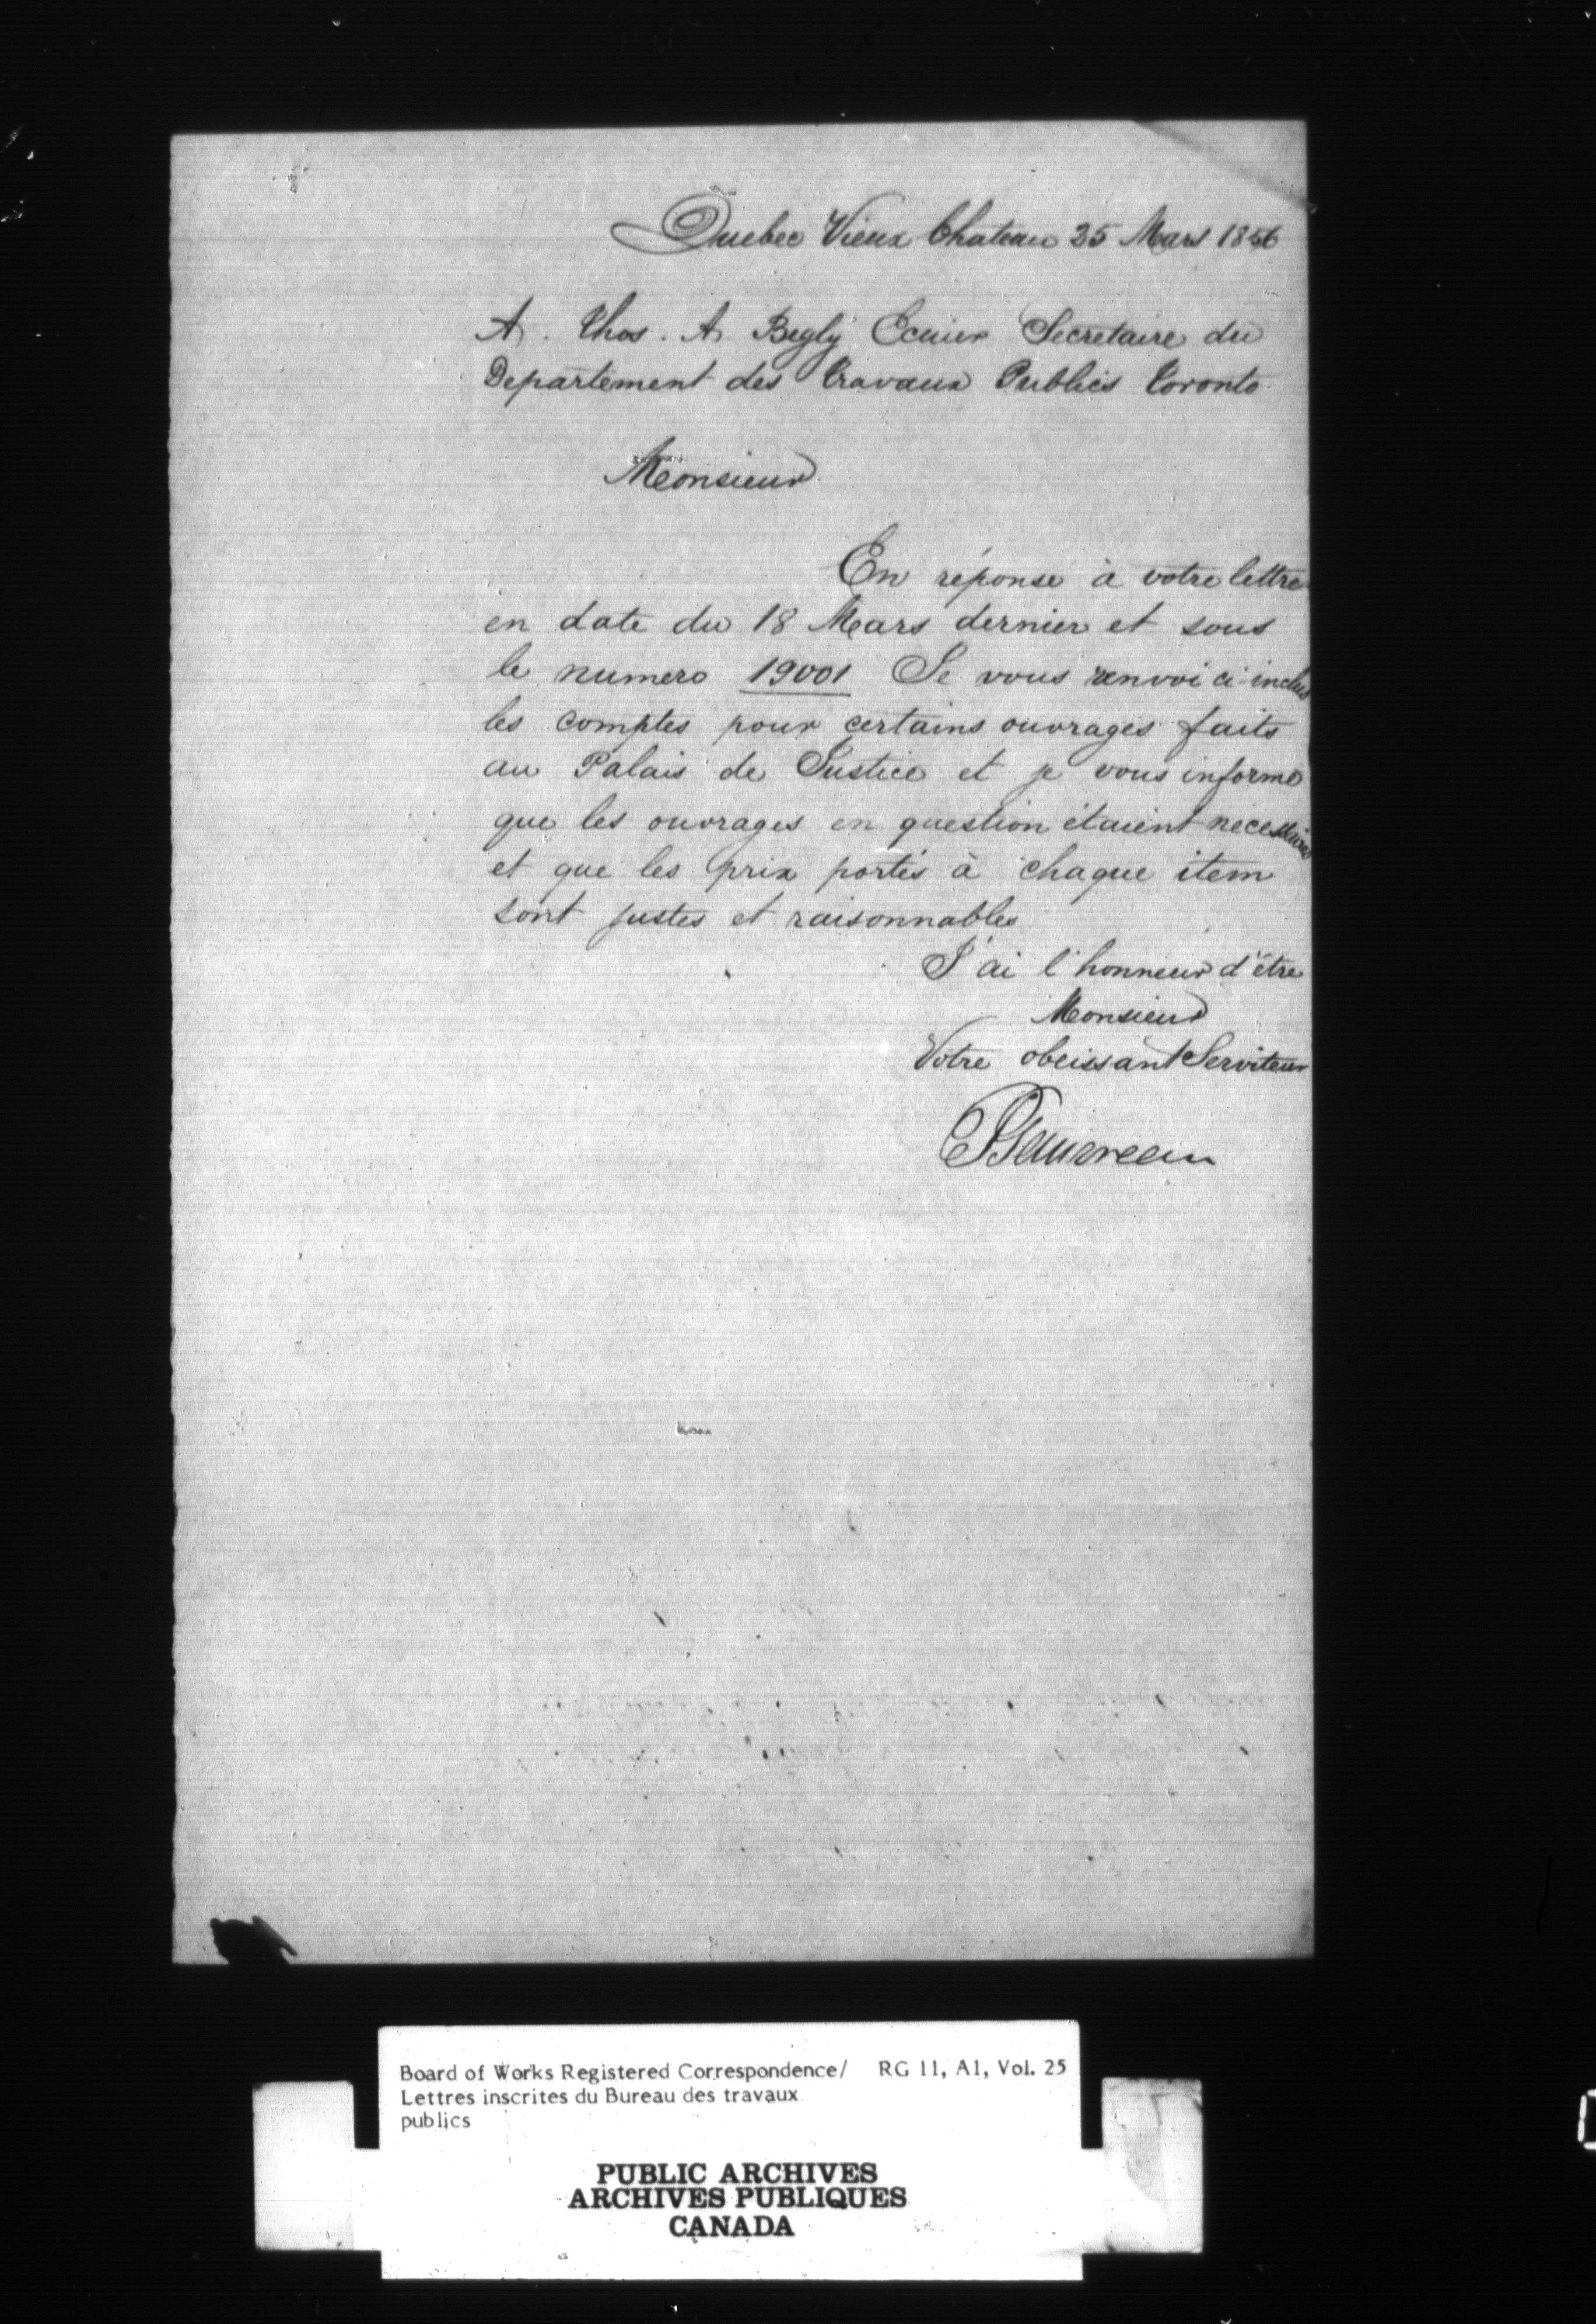 Quebec Vieux Chateau 25 Mars 1856
A. Thos. A Begly Ecuier Secretaire du
Departement des Travaux Publics Toronto
Monsieur
En réponse à votre lettre
en date du 18 Mars dernier et sous
le numero 19001 Je vous renvoi ci-inclus
les comptes pour certains ouvrages faits
au Palais de Justice et je vous informe
que les ouvrages en question étaient necessaires
et que les prix portés à chaque item
sont justes et raisonnables
J'ai l'honneur d'être
Monsieur
Votre obeissant Serviteur
Board of Works Registered Correspondence/ RG 11, A1, Vol. 25
Lettres inscrites du Bureau des travaux
publics
PUBLIC ARCHIVES
ARCHIVES PUBLIQUES
CANADA